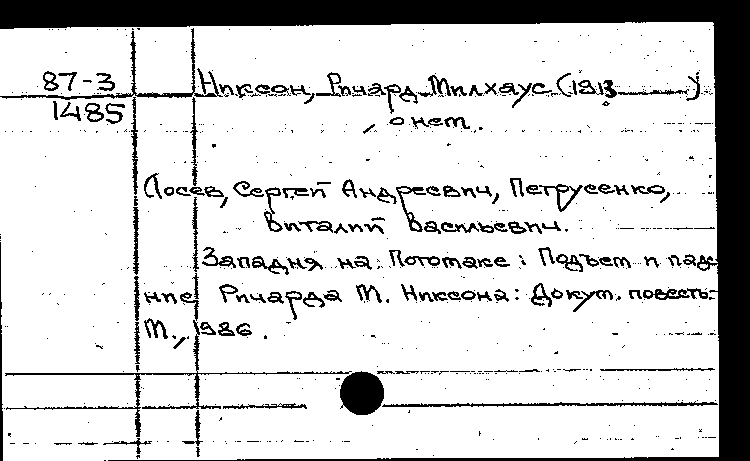 87-3
1485
Никсон, Ричард Милхаус (1913 )
, о нем.
Лосев, Сергей Андреевич, Петрусенко,
Виталий Васильевич.
Западня на Потомаке: Подъем и паде-
ние Ричарда М. Никсона: Докум. повесть.-
М., 1986.